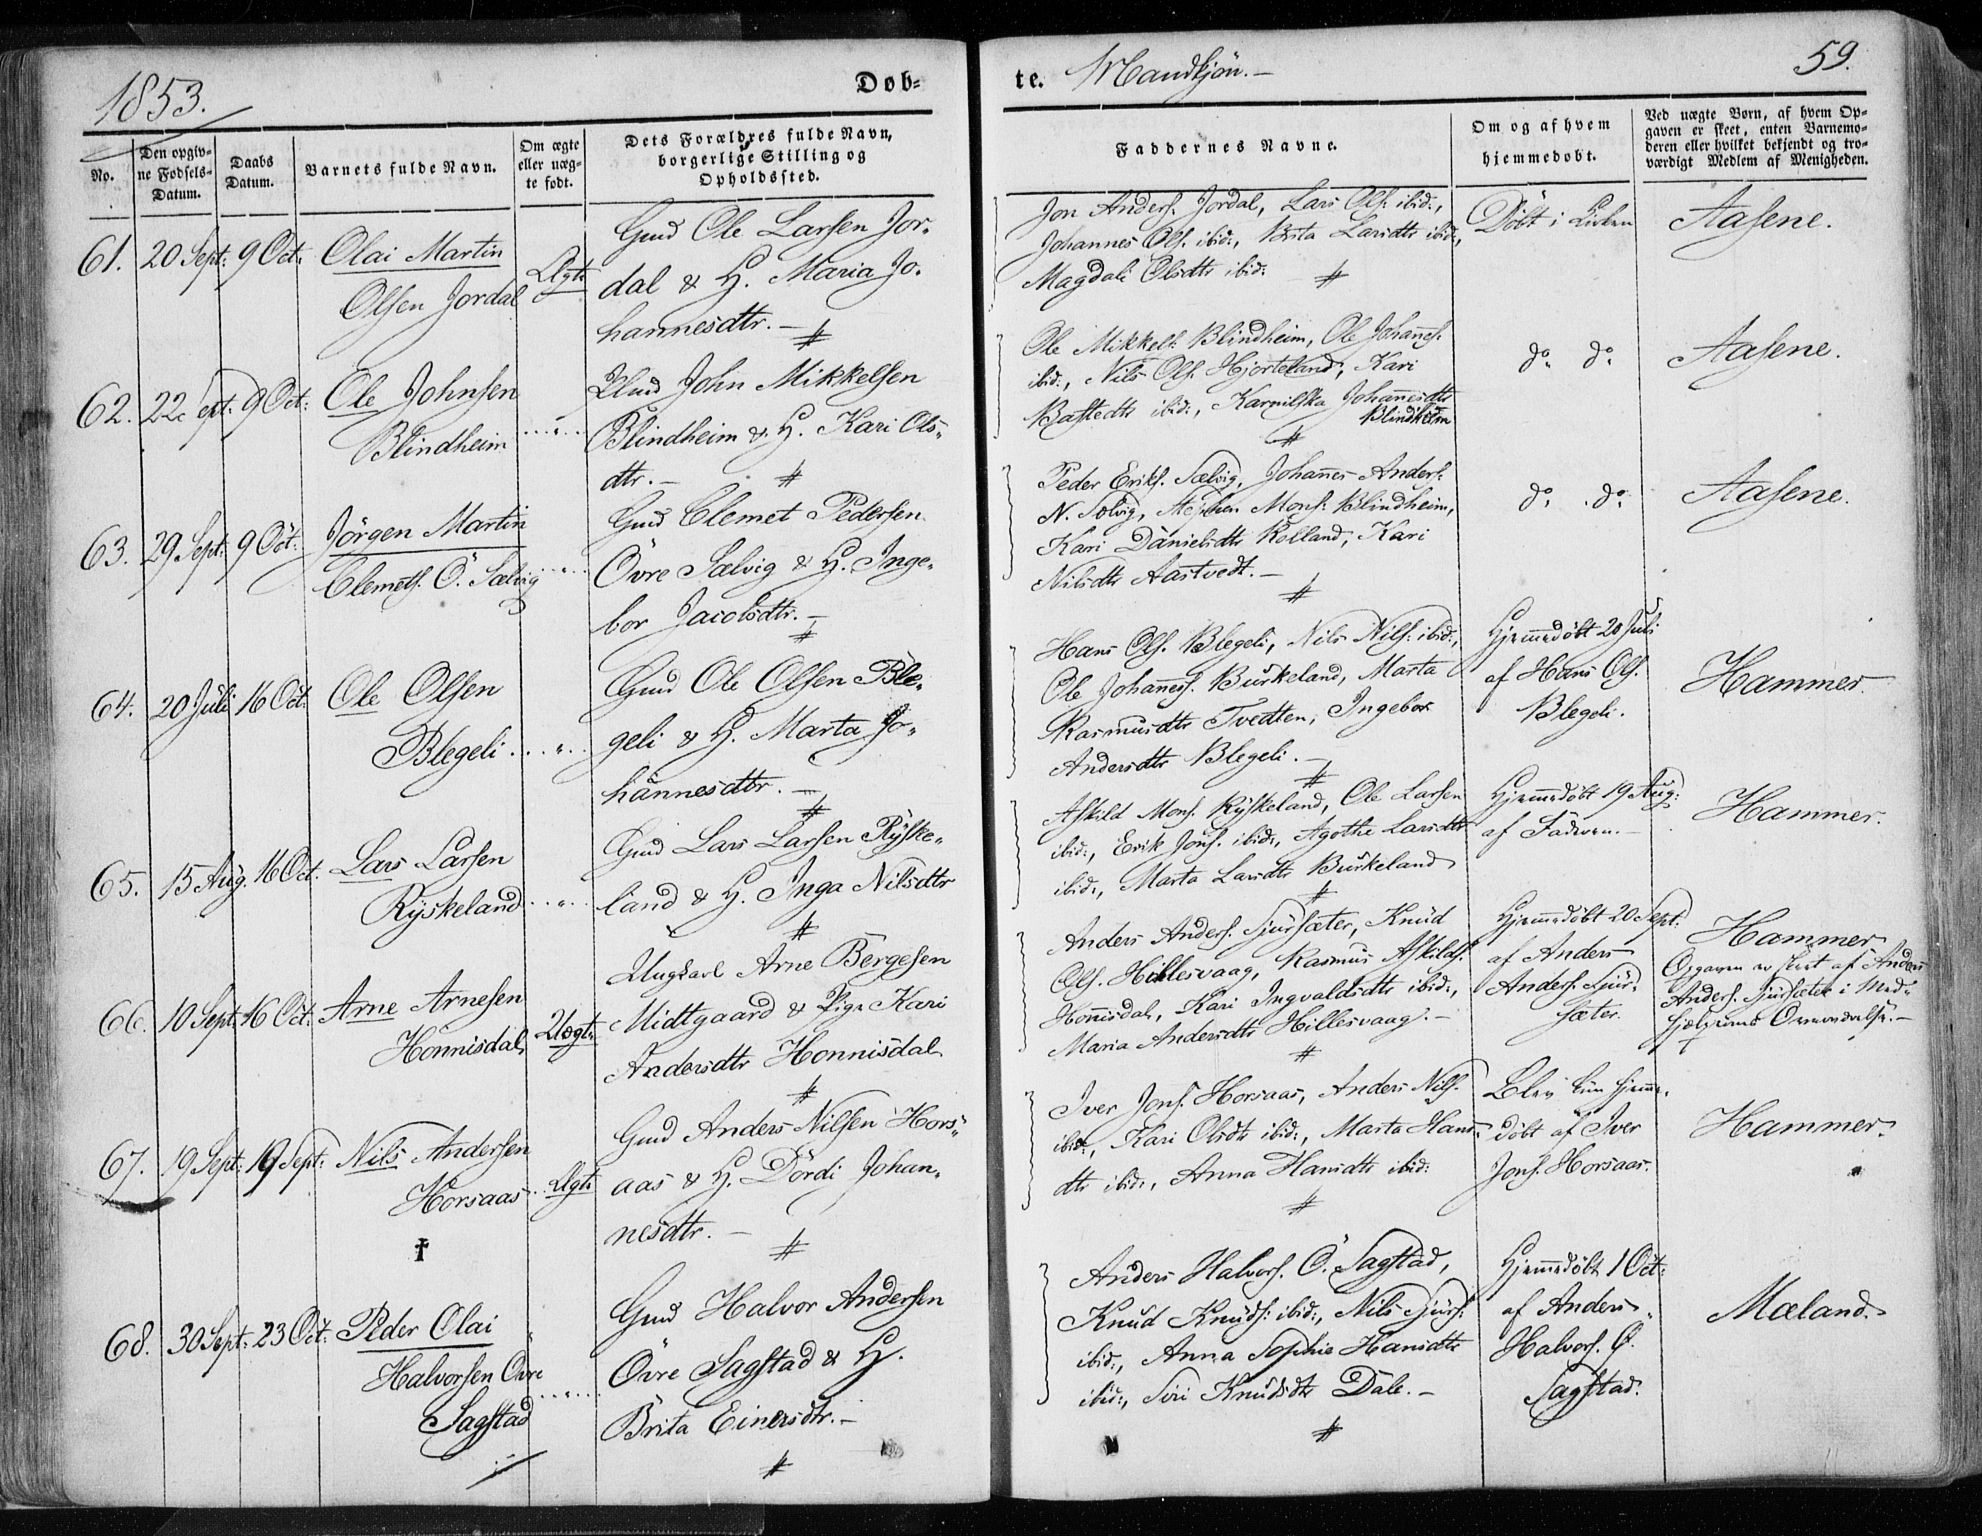 1853.
Døb-
te. Mandkjön.-
59.
No.
Den opgiv-
ne Fødsels-
Datum.
Daabs
Datum.
Barnets fulde Navn.
Om ægte
eller uæg-
te født.
Dets Forældres fulde Navn,
borgerlige Stilling og
Opholdssted.
Faddernes Navne.
Om og af hvem
hjemmedøbt.
Ved uægte Børn, af hvem Op-
gaven er skeet, enten Barnemo-
deren eller hvilket bekjendt og tro-
værdigt Medlem af Menigheden.
61. 20 Sept: 9 Oct: Olai Martin
Olsen Jordal
Ægte
Gmd Ole Larsen Jor-
dal & H. Maria Jo-
hannesdtr.-
Jon Anders. Jordal, Lars Ols. ibid.,
Johannes Ols. ibid., Brita Larsdtr ibid.,
Magdali Olsdtr ibid.
Döbt i Kirken
Aasene.
62. 22 Sept: 9 Oct: Ole Johnsen
Blindheim
..„..
John Mikkelsen
Blindheim & H. Kari Ols-
dtr.-
Ole Mikkels. Blindheim, Ole Johanes.
ibid., Nils Ols. Hjorteland, Kari
ibid., Johanesdtr
Blindheim
do. do.
Aasene.
63. 29 Sept: 9 Oct: Jörgen Martin
Clemets. Ö. Sælvig
..„..
Gmd Clemet Pedersen
Övre Sælvig & H. Inge-
bor Jacobsdtr.-
Peder Eriks. Sælvig, Johanes Anders.
N. Sölvig, Stephen Mons. Blindheim,
Kari Danielsdtr Rolland, Kari
Nilsdtr Aastvedt.-
do. do.
Aasene.
64. 20 Juli 16 Oct. Ole Olsen
Blegeli
..„..
Gmd Ole Olsen Ble-
geli & H. Marta Jo-
hannesdtr.-
Hans Ols. Blegeli, Nils Nils. ibid.,
Ole Johaness. Burkeland, Marta
Rasmusdtr Tvedten, Ingebor
Andersdtr Blegeli.-
Hjemmedöbt 20 Juli
af Hans Ols.
Blegeli.
Hammer.
65. 15 Aug. 16 Oct. Lars Larsen
Ryskeland
..„..
Gmd Lars Larsen Ryske-
land & H. Inga Nilsdtr
Askild Mons. Ryskeland, Ole Larsen
ibid., Erik Jons. ibid., Agothe Larsdtr
ibid., Marta Larsdtr Burkeland
Hjemmedöbt 19 Aug:
af Faderen.-
Hammer.
66. 10 Sept: 16 Oct: Arne Arnesen
Honnisdal
Uægte
Ungkarl Arne Bergesen
Midtgaard & Pige Kari
Andersdtr Honnisdal
Anders Anders. Sjursæter, Knud
Ols. Hillesvaag, Rasmus Askilds.
Honnisdal, Kari Ingvaldsdtr ibid.,
Maria Andersdtr Hillesvaag.-
Hjemmedöbt 20 Sept.
af Anders
Anders. Sjur-
sæter.
Hammer
Opgaven er skeet af Anders
Anders. Sjursæter i Med-
67. 19 Sept: 19 Sept: Nils Andersen
Horsaas
†
Ægte
Gmd Anders Nilsen Hors-
aas & H. Dördi Johan-
nesdtr.-
Iver Jons. Horsaas, Anders Nils.
ibid., Kari Olsdtr ibid., Marta Hans-
dtr ibid., Anna Hansdtr ibid.
Blev kun hjemme-
döbt af Iver
Jons. Horsaas.
Hammer.
68. 30 Sept: 23 Oct: Peder Olai
Halvorsen Övre
Sagstad
..„..
Gmd Halvor Andersen
Övre Sagstad & H.
Brita Einersdtr.-
Anders Halvors. Ö. Sagstad,
Knud Knuds. ibid., Nils Sjurs.
ibid., Anna Sophie Hansdtr
ibid., Siri Knudsdtr Dale.-
Hjemmedöbt 1 Oct:
af Anders
Halvors. Ö.
Sagstad.
Mæland.